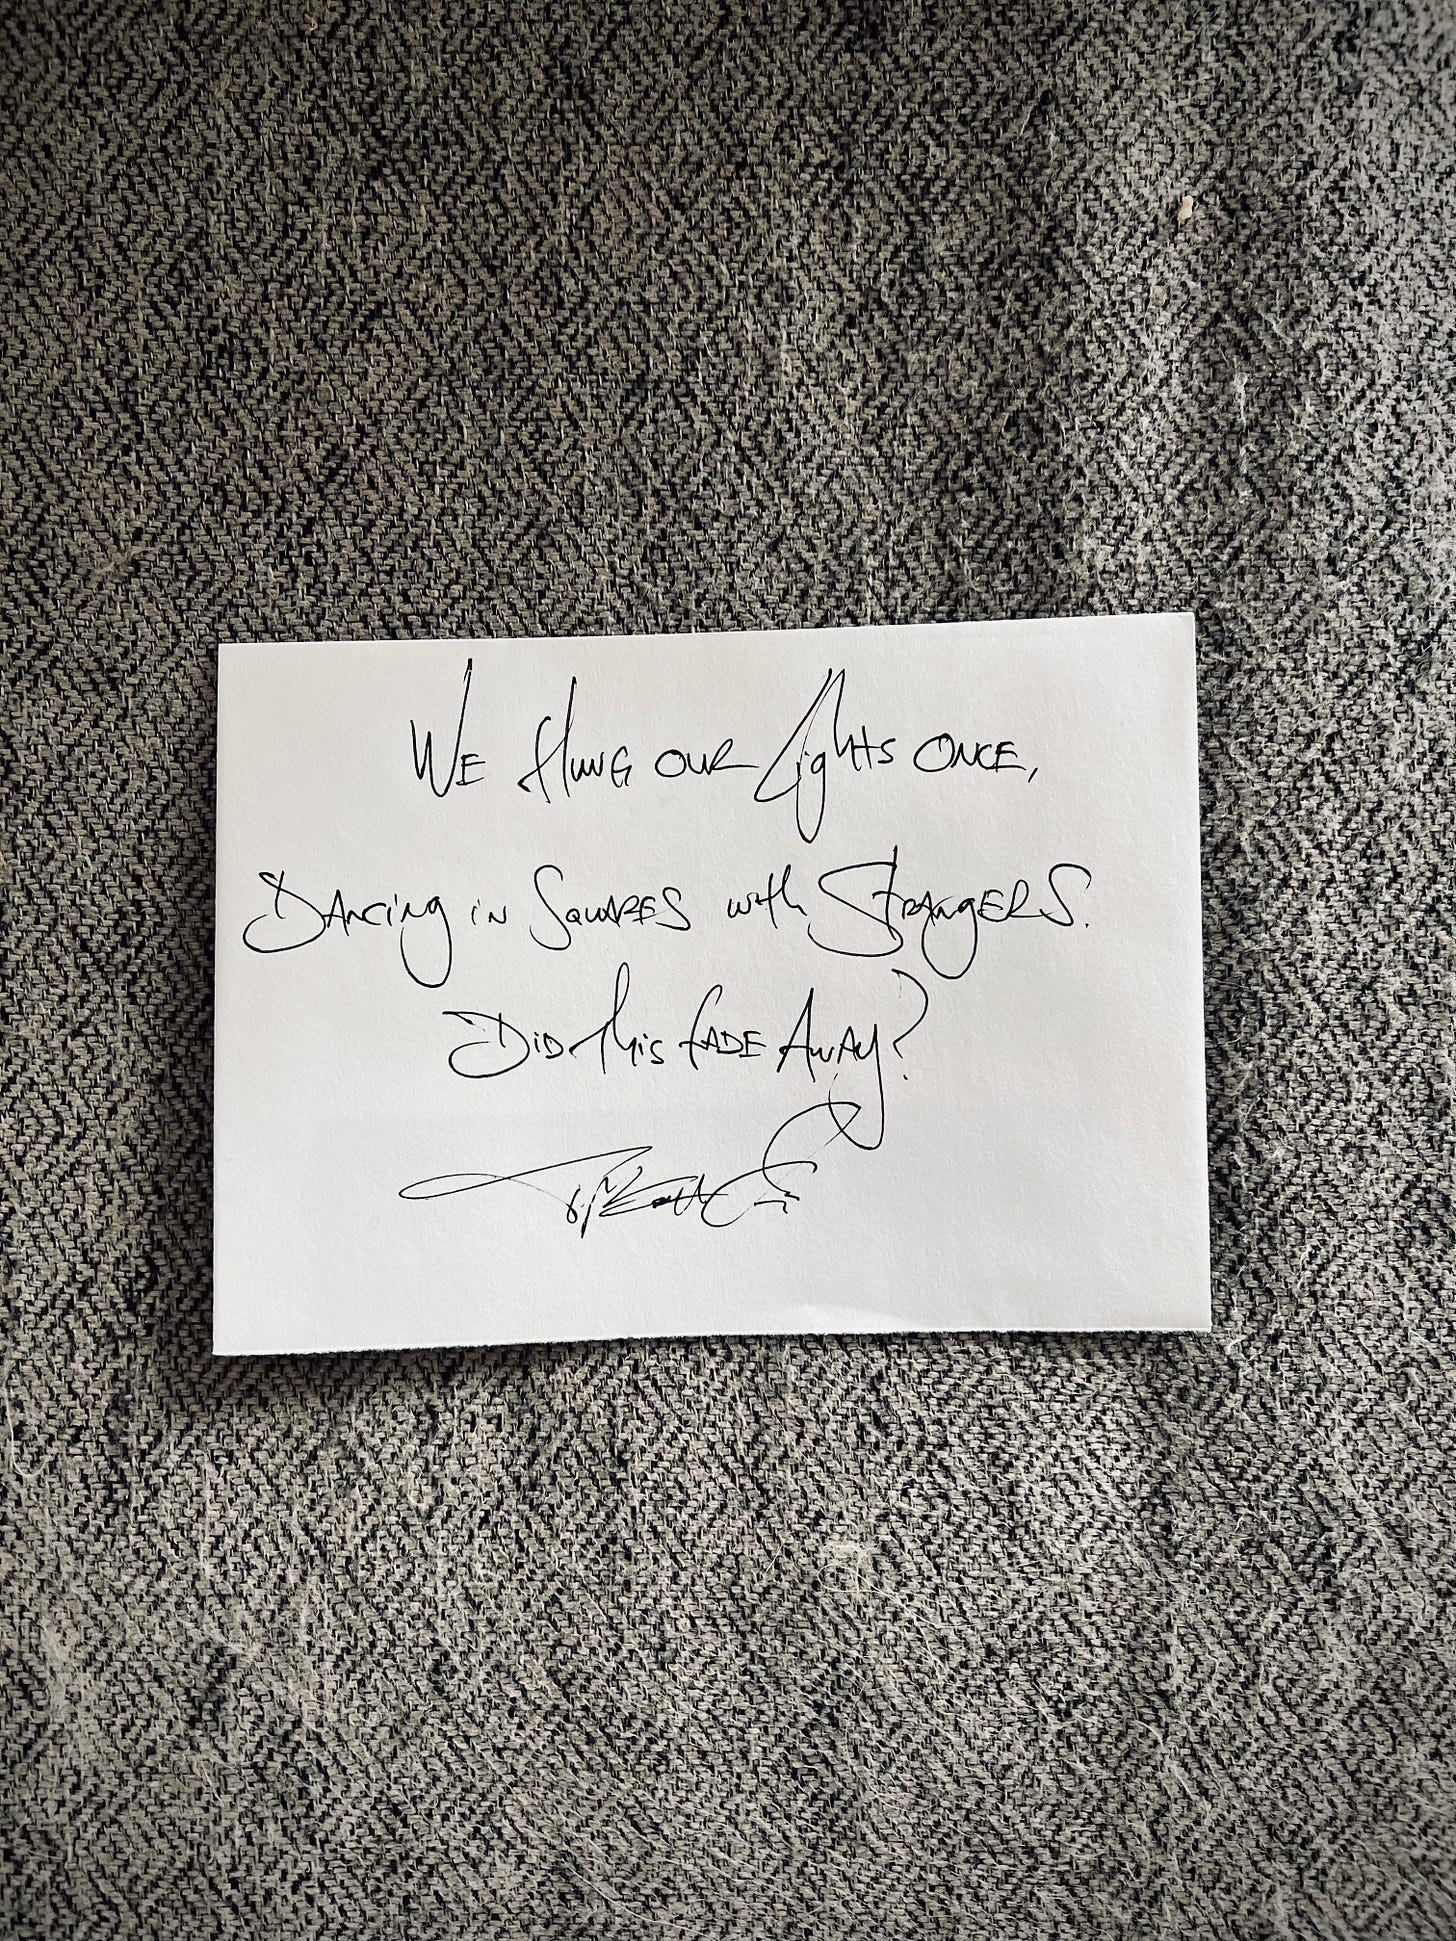 We flung our lights once,
Dancing in Squares with Strangers.
Did this fade Away?